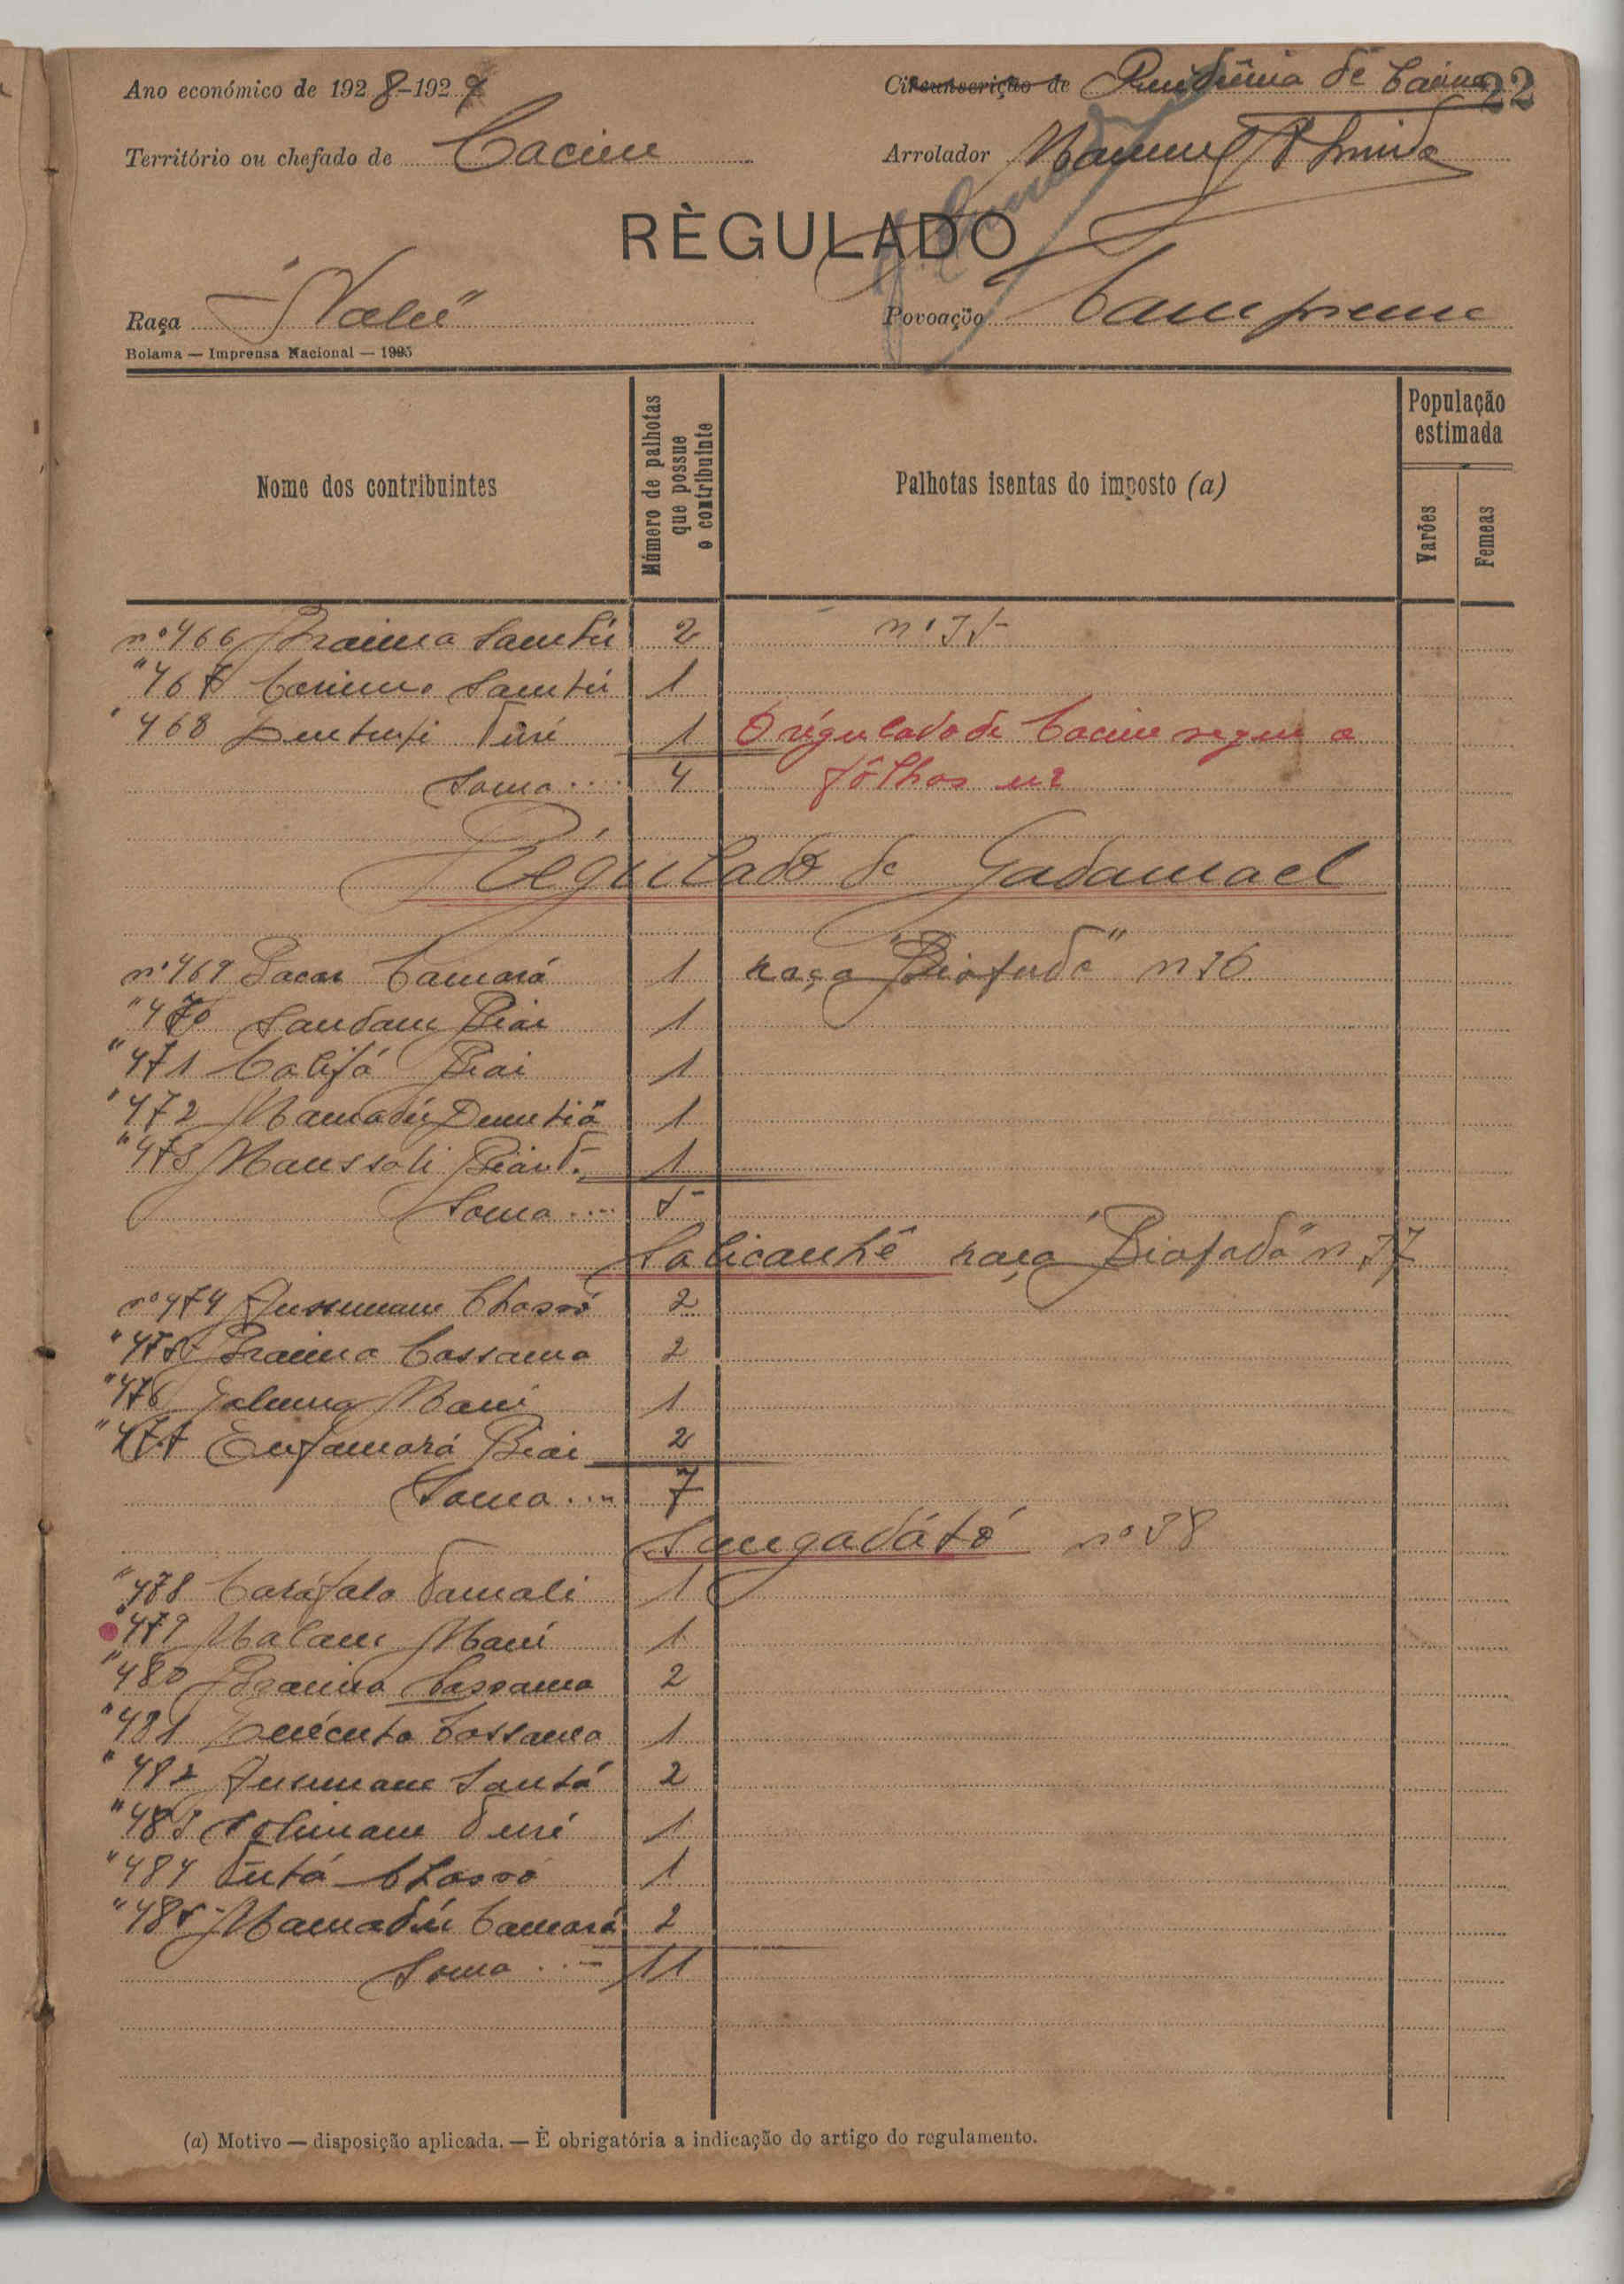 Ano económico de 1928-1929
Circunscrição de Residência de Cacine 22
Território ou chefado de Cacine
Arrolador Manuel
RÈGULADO
Raça "Nalú"
Povoação Campreme
Bolama — Imprensa Nacional — 1925
Nome dos contribuintes
Número de palhotas que possue o contribuinte
Palhotas isentas do imposto (a)
População estimada
Varões
Femeas
nº 466 Braima Samtú 2 nº 35
" 467 Carimo Samtú 1
" 468 Turé 1 O régulado de Cacine segue a
Soma .... 4 fôlhas
Régulado de Gadamael
nº 469 Bacar Camará 1 raça "Biafada" nº 36
" 470 Sandam Biai 1
" 471 Califá Biai 1
" 472 Mamadú 1
" 473 Manssali 1
Soma .... 5
Salicanhê raça "Biafada" nº 37
nº 474 Jussumane 2
" 475 Braima Cassama 2
" 476 Mané 1
" 477 Enfamará Biai 2
Soma .... 7
Sangadátó nº 38
" 478 Caráfala Damali 1
" 479 Malam Mané 1
" 480 Braima Cassama 2
" 481 Cassama 1
" 482 Jusumane Santá 2
" 483 Solimane Turé 1
" 484 Tutá 1
" 485 Mamadú Camará 2
Soma .... 11
(a) Motivo — disposição aplicada. — È obrigatória a indicação do artigo do regulamento.